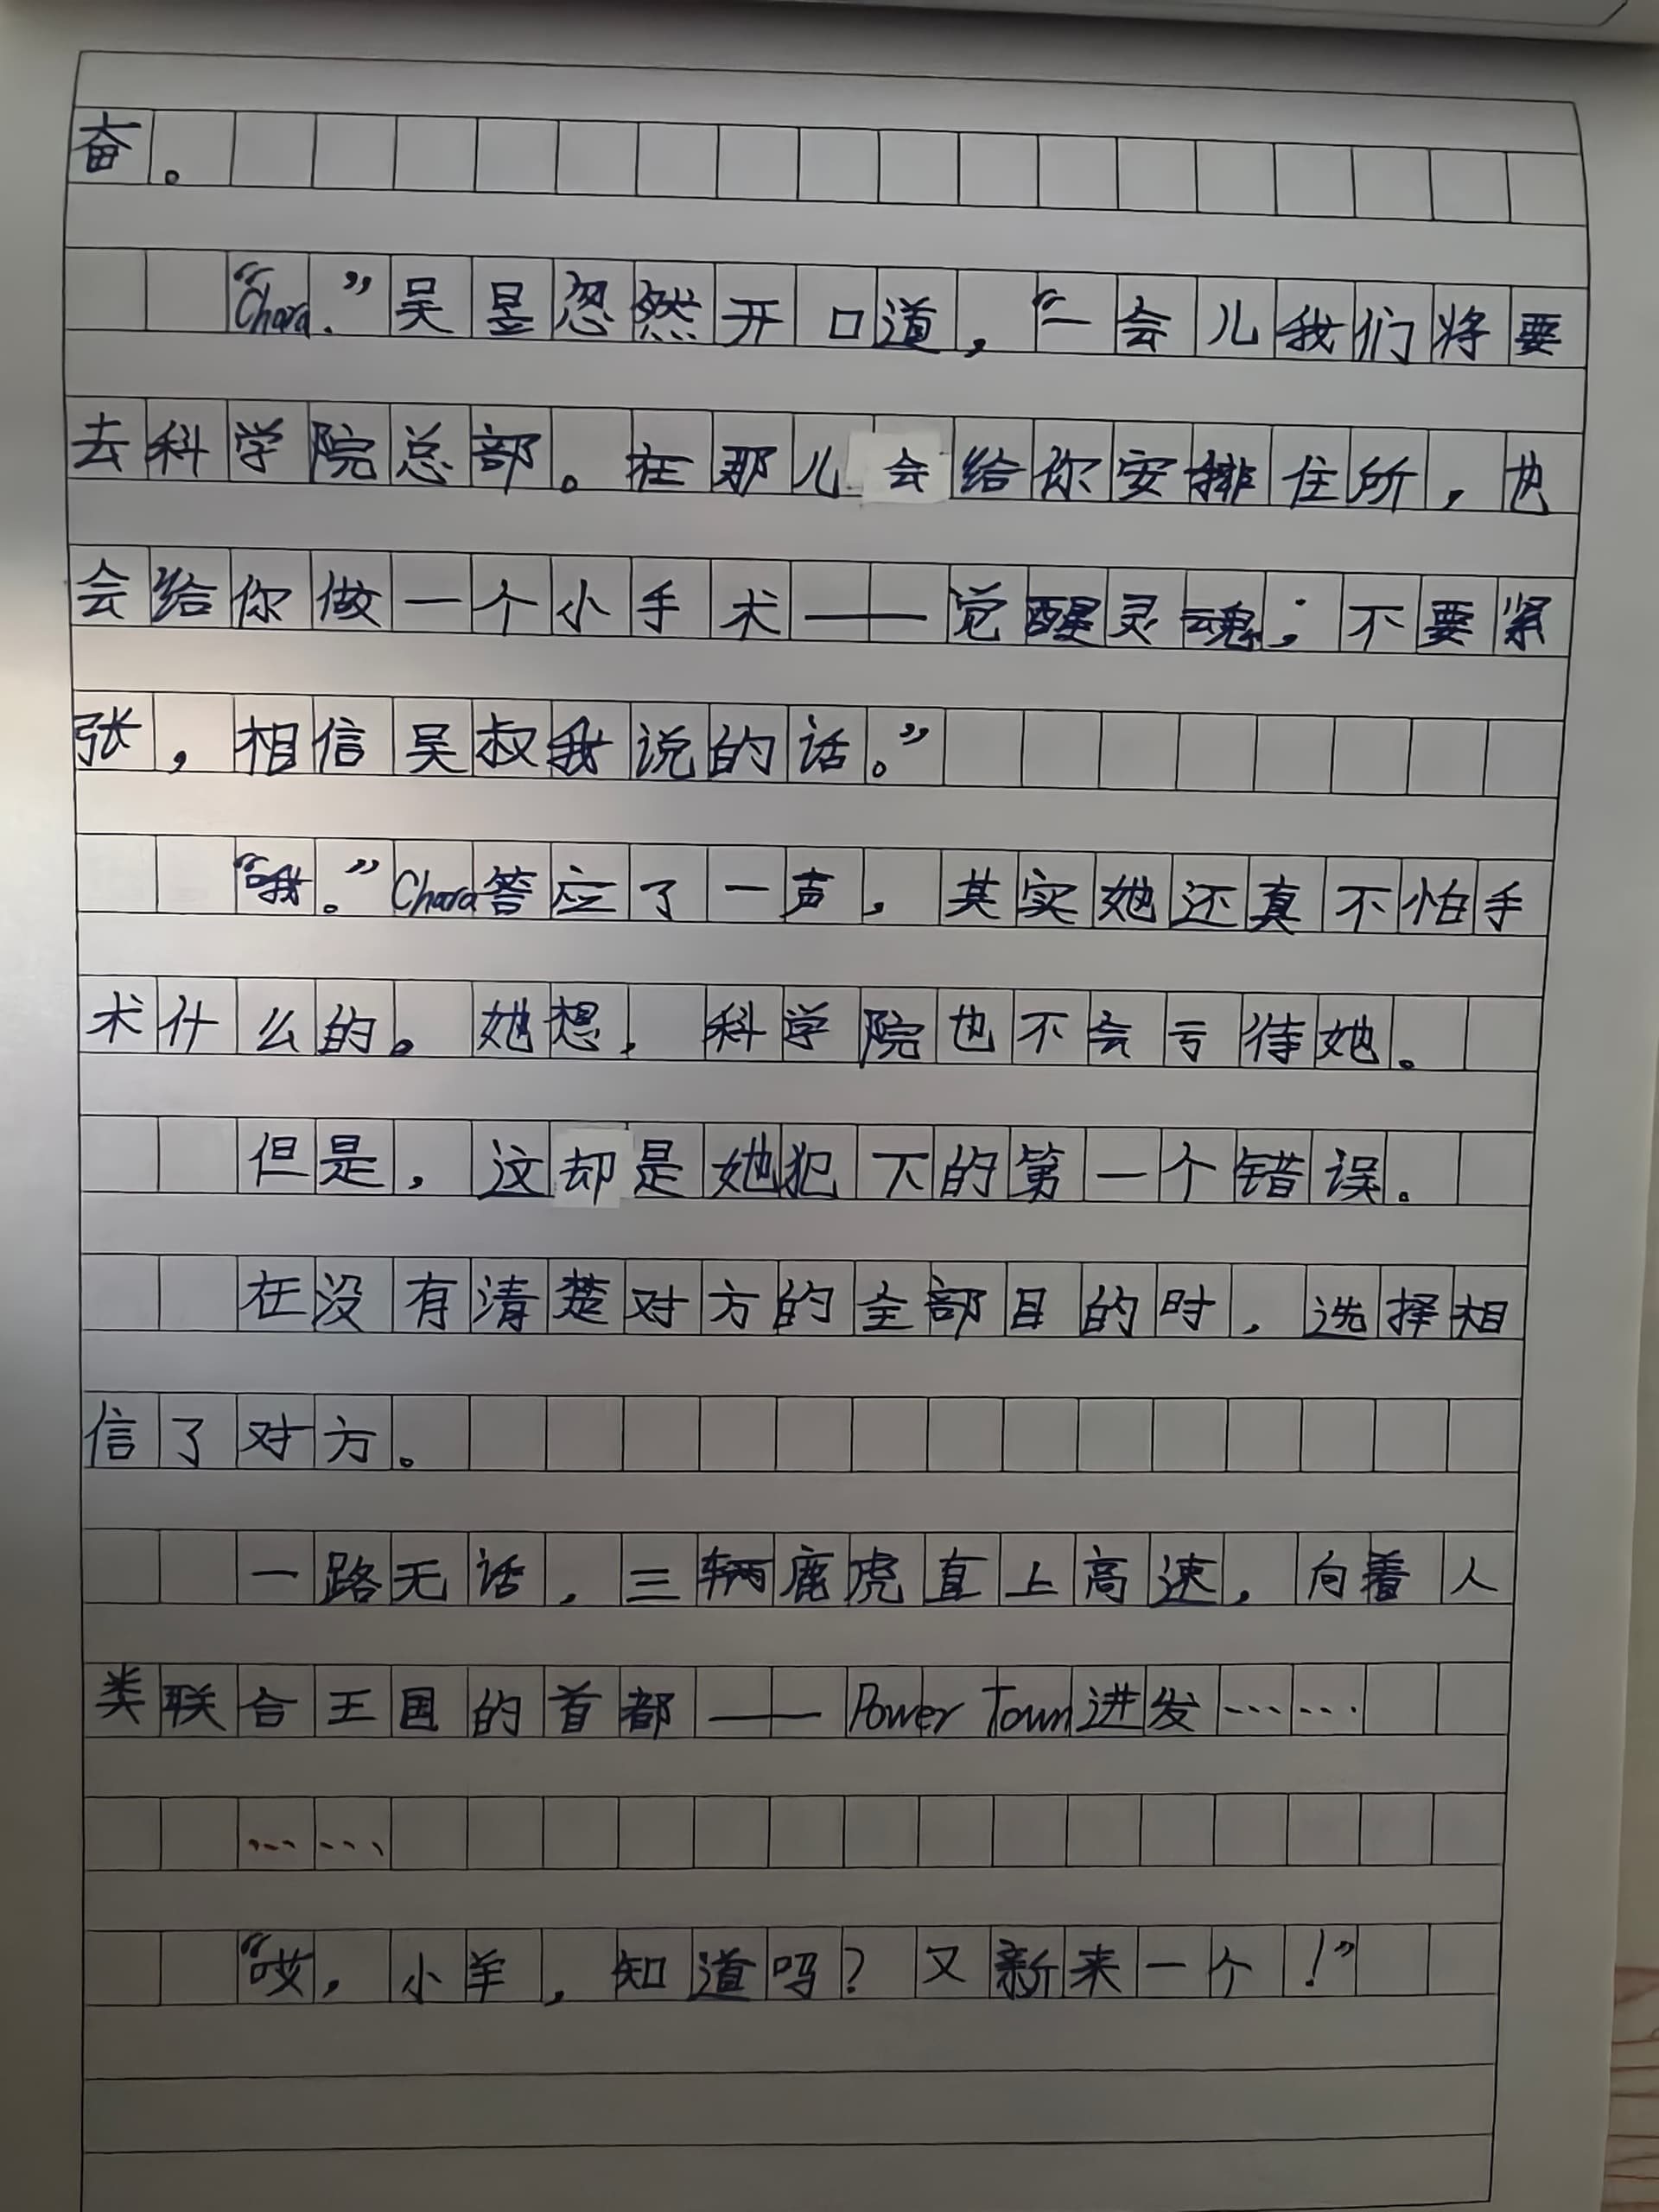 奋。
“Chara.”吴昱忽然开口道，“一会儿我们将要
去科学院总部。在那儿会给你安排住所，也
会给你做一个小手术——觉醒灵魂；不要紧
张，相信吴叔我说的话。”
“哦。”Chara答应了一声，其实她还真不怕手
术什么的。她想，科学院也不会亏待她。
但是，这却是她犯下的第一个错误。
在没有清楚对方的全部目的时，选择相
信了对方。
一路无话，三辆鹿虎直上高速，向着人
类联合王国的首都——Power Town进发……
……
“哎，小羊，知道吗？又新来一个！”